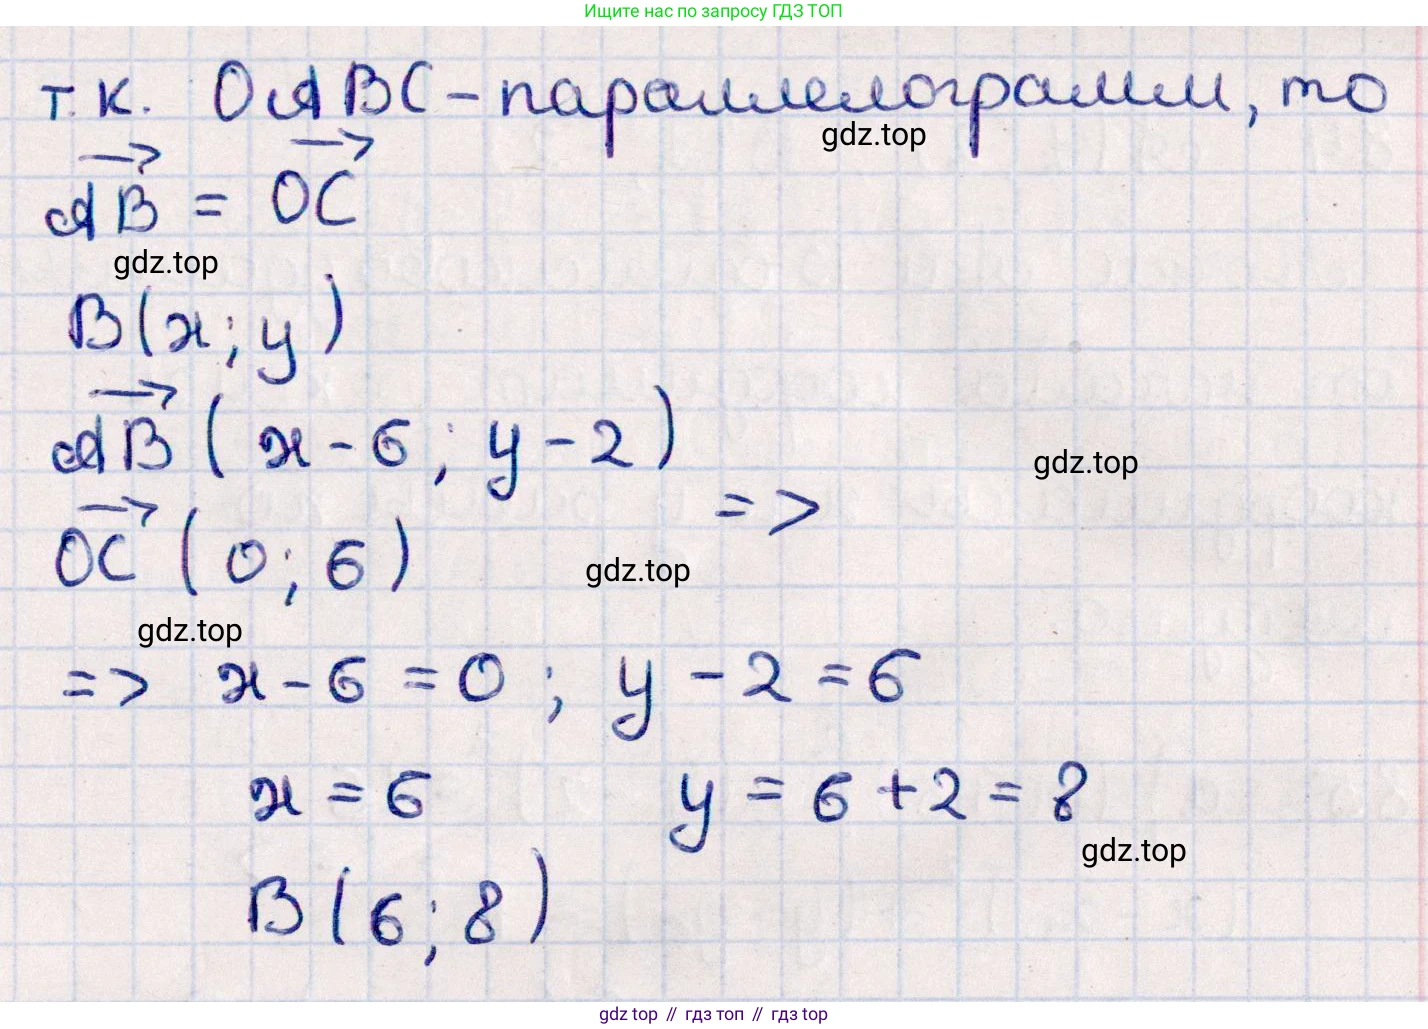 Ищите нас по запросу ГДЗ ТОП
т.к. OABC - параллелограмм, то
gdz.top
AB = OC
gdz.top
B(x; y)
AB (x-6; y-2)
gdz.top
=>
OC (0; 6)
gdz.top
gdz.top
=> x-6=0; y-2=6
x=6 y=6+2=8
gdz.top
B(6; 8)
gdz top // гдз топ // гдз top